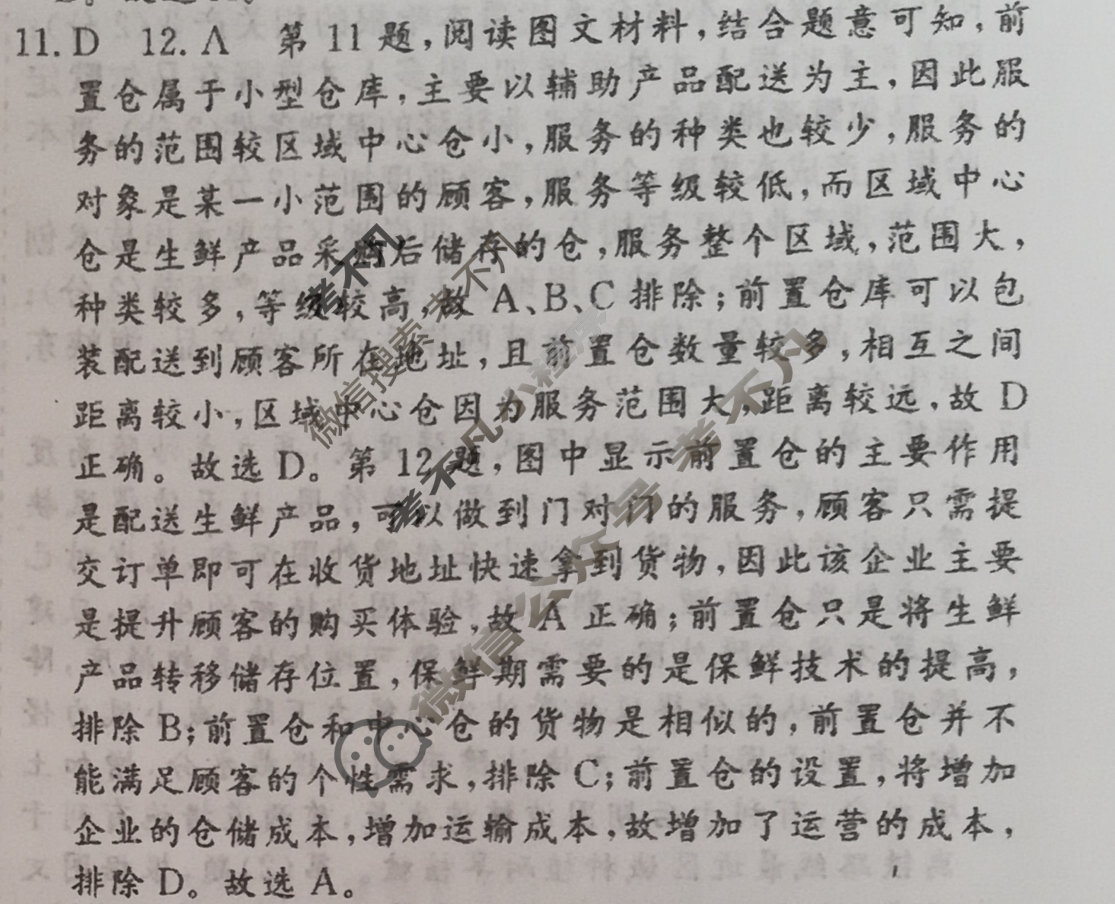 11. D 12. A 第 11 题,阅读图文材料,结合题意可知,前
置仓属于小型仓库,主要以辅助产品配送为主,因此服
务的范围较区域中心仓小,服务的种类也较少,服务的
对象是某一小范围的顾客,服务等级较低,而区域中心
仓是生鲜产品采购后储存的仓,服务整个区域,范围大,
种类较多,等级较高,故 A、B、C 排除;前置仓库可以包
装配送到顾客所在地址,且前置仓数量较多,相互之间
距离较小,区域中心仓因为服务范围大,距离较远,故 D
正确。故选 D。第 12 题,图中显示前置仓的主要作用
是配送生鲜产品,可以做到门对门的服务,顾客只需提
交订单即可在收货地址快速拿到货物,因此该企业主要
是提升顾客的购买体验,故 A 正确;前置仓只是将生鲜
产品转移储存位置,保鲜期需要的是保鲜技术的提高,
排除 B;前置仓和中心仓的货物是相似的,前置仓并不
能满足顾客的个性需求,排除 C;前置仓的设置,将增加
企业的仓储成本,增加运输成本,故增加了运营的成本,
排除 D。故选 A。
考不凡
微信搜索 考不凡
考不凡小程序
微信公众号 考不凡